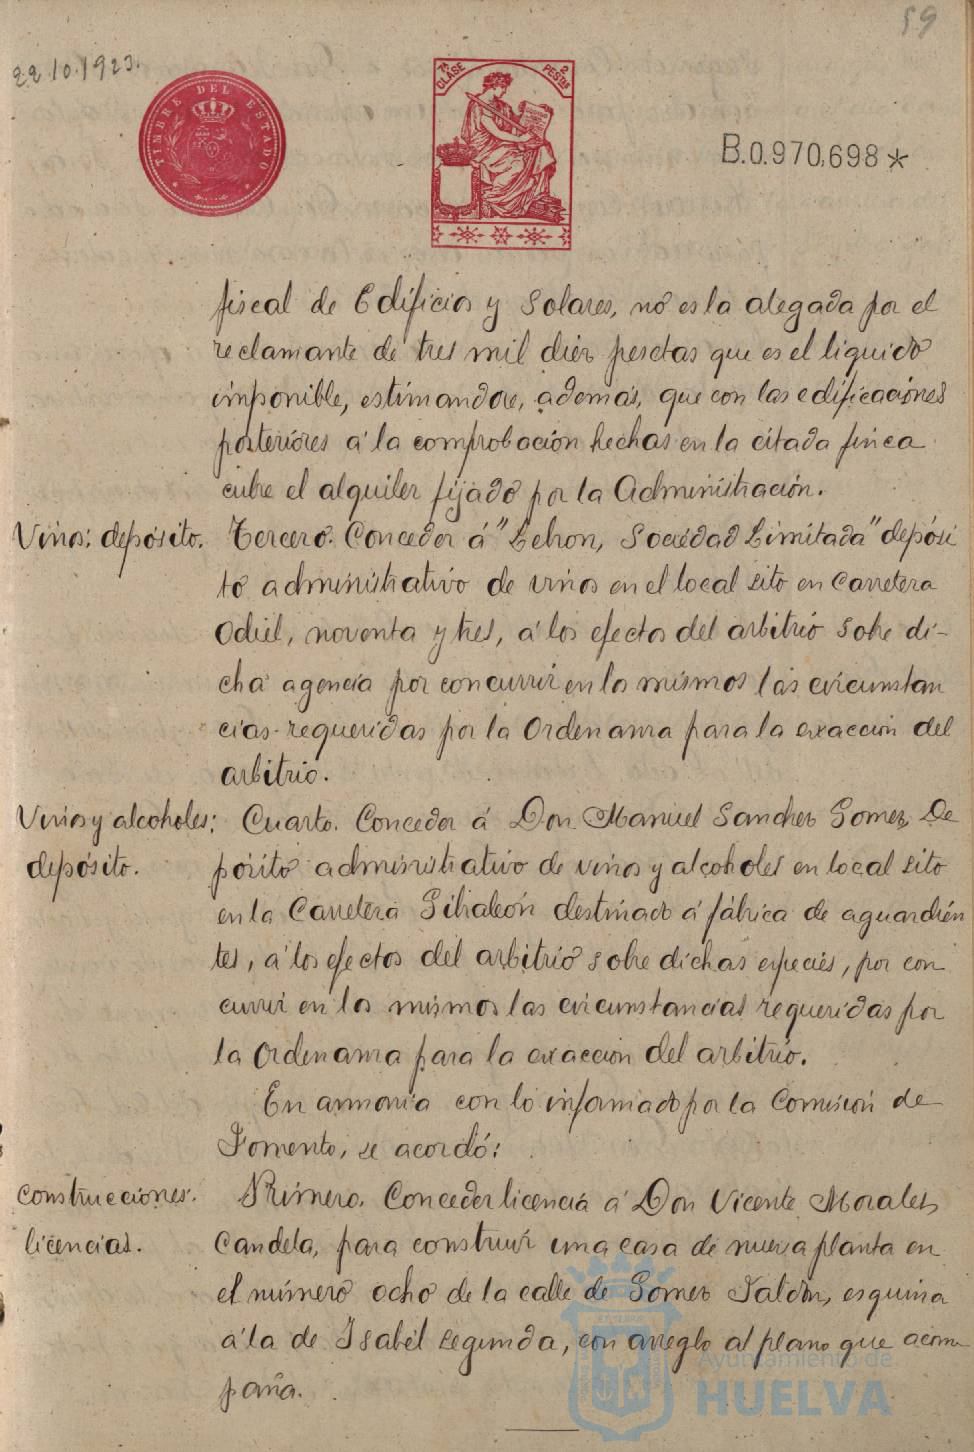 59
22 10.1923.
TIMBRE DEL ESTADO
7ª CLASE
2 PESTAS
B.0.970,698*
fiscal de Edificios y Solares, no es la alegada por el
reclamante de tres mil diez pesetas que es el liquido
imponible, estimandose, además, que con las edificaciones
posteriores á la comprobación hechas en la citada finca
cubre el alquiler fijado por la Administración.
Vinos; depósito. Tercero. Conceder á "Lebron, Sociedad Limitada" depósi
to administrativo de vinos en el local sito en Carretera
Odiel, noventa y tres, á los efectos del arbitrio sobre di-
cha agencia por concurrir en los mismos las circunstan
cias requeridas por la Ordenanza para la exacción del
arbitrio.
Vinos y alcoholes; Cuarto. Conceder á Don Manuel Sanchez Gomez, De
depósito. pósito administrativo de vinos y alcoholes en local sito
en la Carretera Gibraleón destinado á fábrica de aguardien
tes, á los efectos del arbitrio sobre dichas especies, por con
currir en los mismos las circunstancias requeridas por
la Ordenanza para la exacción del arbitrio.
En armonia con lo informado por la Comisión de
Fomento, se acordó:
Construcciones. Primero. Conceder licencia á Don Vicente Morales
licencias. Candela, para construir una casa de nueva planta en
el número ocho de la calle de Gomez Jaldon, esquina
á la de Isabel Segunda, con arreglo al plano que acom
paña.
Ayuntamiento de
HUELVA